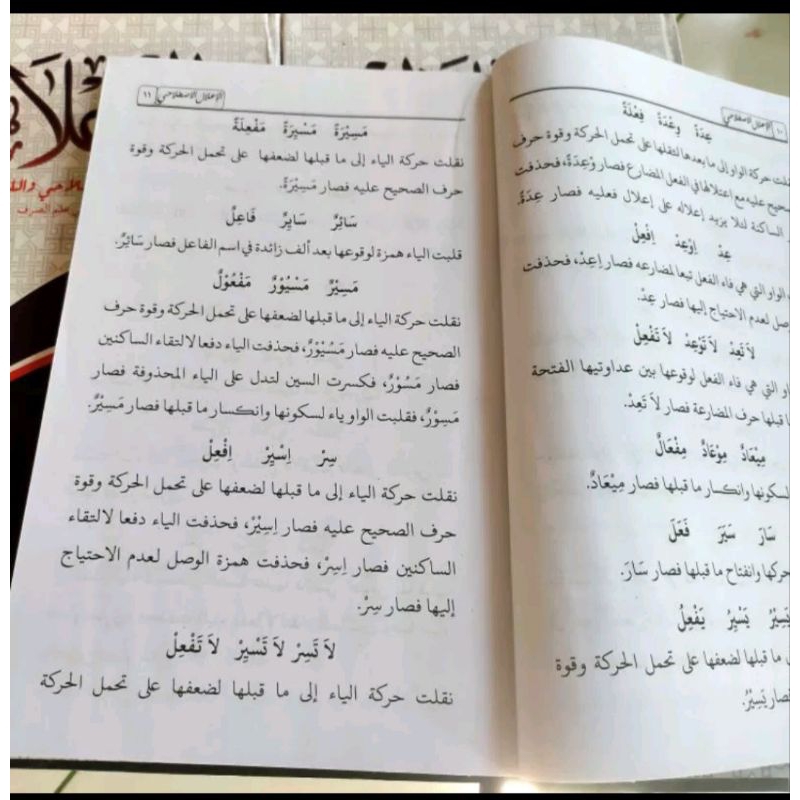 ١٠ الإعلال الاصطلاحي
عِدَةٌ وِعْدَةٌ فِعْلَةٌ
نقلت حركة الواو إلى ما بعدها لثقلها على تحمل الحركة وقوة حرف
الصحيح عليه مع اعتلالها في الفعل المضارع فصار وْعِدَةٌ، فحذفت
الساكنة لئلا يزيد إعلاله على إعلال فعليه فصار عِدَةٌ.
عِدْ اِوْعِدْ اِفْعِلْ
الواو التي هي فاء الفعل تبعا لمضارعه فصار اِعِدْ، فحذفت
الوصل لعدم الاحتياج إليها فصار عِدْ.
لاَ تَعِدْ لاَ تَوْعِدْ لاَ تَفْعِلْ
التي هي فاء الفعل لوقوعها بين عداوتيها الفتحة
ما قبلها حرف المضارعة فصار لاَ تَعِدْ.
مِيْعَادٌ مِوْعَادٌ مِفْعَالٌ
لسكونها وانكسار ما قبلها فصار مِيْعَادٌ.
سَارَ سَيَرَ فَعَلَ
وانفتاح ما قبلها فصار سَارَ.
يَسِيْرُ يَسْيِرُ يَفْعِلُ
ما قبلها لضعفها على تحمل الحركة وقوة
فصار يَسِيْرُ.
الإعلال الاصطلاحي ١١
مَسِيْرَةٌ مَسْيِرَةٌ مَفْعِلَةٌ
نقلت حركة الياء إلى ما قبلها لضعفها على تحمل الحركة وقوة
حرف الصحيح عليه فصار مَسِيْرَةٌ.
سَائِرٌ سَايِرٌ فَاعِلٌ
قلبت الياء همزة لوقوعها بعد ألف زائدة في اسم الفاعل فصار سَائِرٌ.
مَسِيْرٌ مَسْيُوْرٌ مَفْعُوْلٌ
نقلت حركة الياء إلى ما قبلها لضعفها على تحمل الحركة وقوة حرف
الصحيح عليه فصار مَسُيْوْرٌ، فحذفت الياء دفعا لالتقاء الساكنين
فصار مَسُوْرٌ، فكسرت السين لتدل على الياء المحذوفة فصار
مَسِوْرٌ، فقلبت الواو ياء لسكونها وانكسار ما قبلها فصار مَسِيْرٌ.
سِرْ اِسْيِرْ اِفْعِلْ
نقلت حركة الياء إلى ما قبلها لضعفها على تحمل الحركة وقوة
حرف الصحيح عليه فصار اِسِيْرْ، فحذفت الياء دفعا لالتقاء
الساكنين فصار اِسِرْ، فحذفت همزة الوصل لعدم الاحتياج
إليها فصار سِرْ.
لاَ تَسِرْ لاَ تَسْيِرْ لاَ تَفْعِلْ
نقلت حركة الياء إلى ما قبلها لضعفها على تحمل الحركة